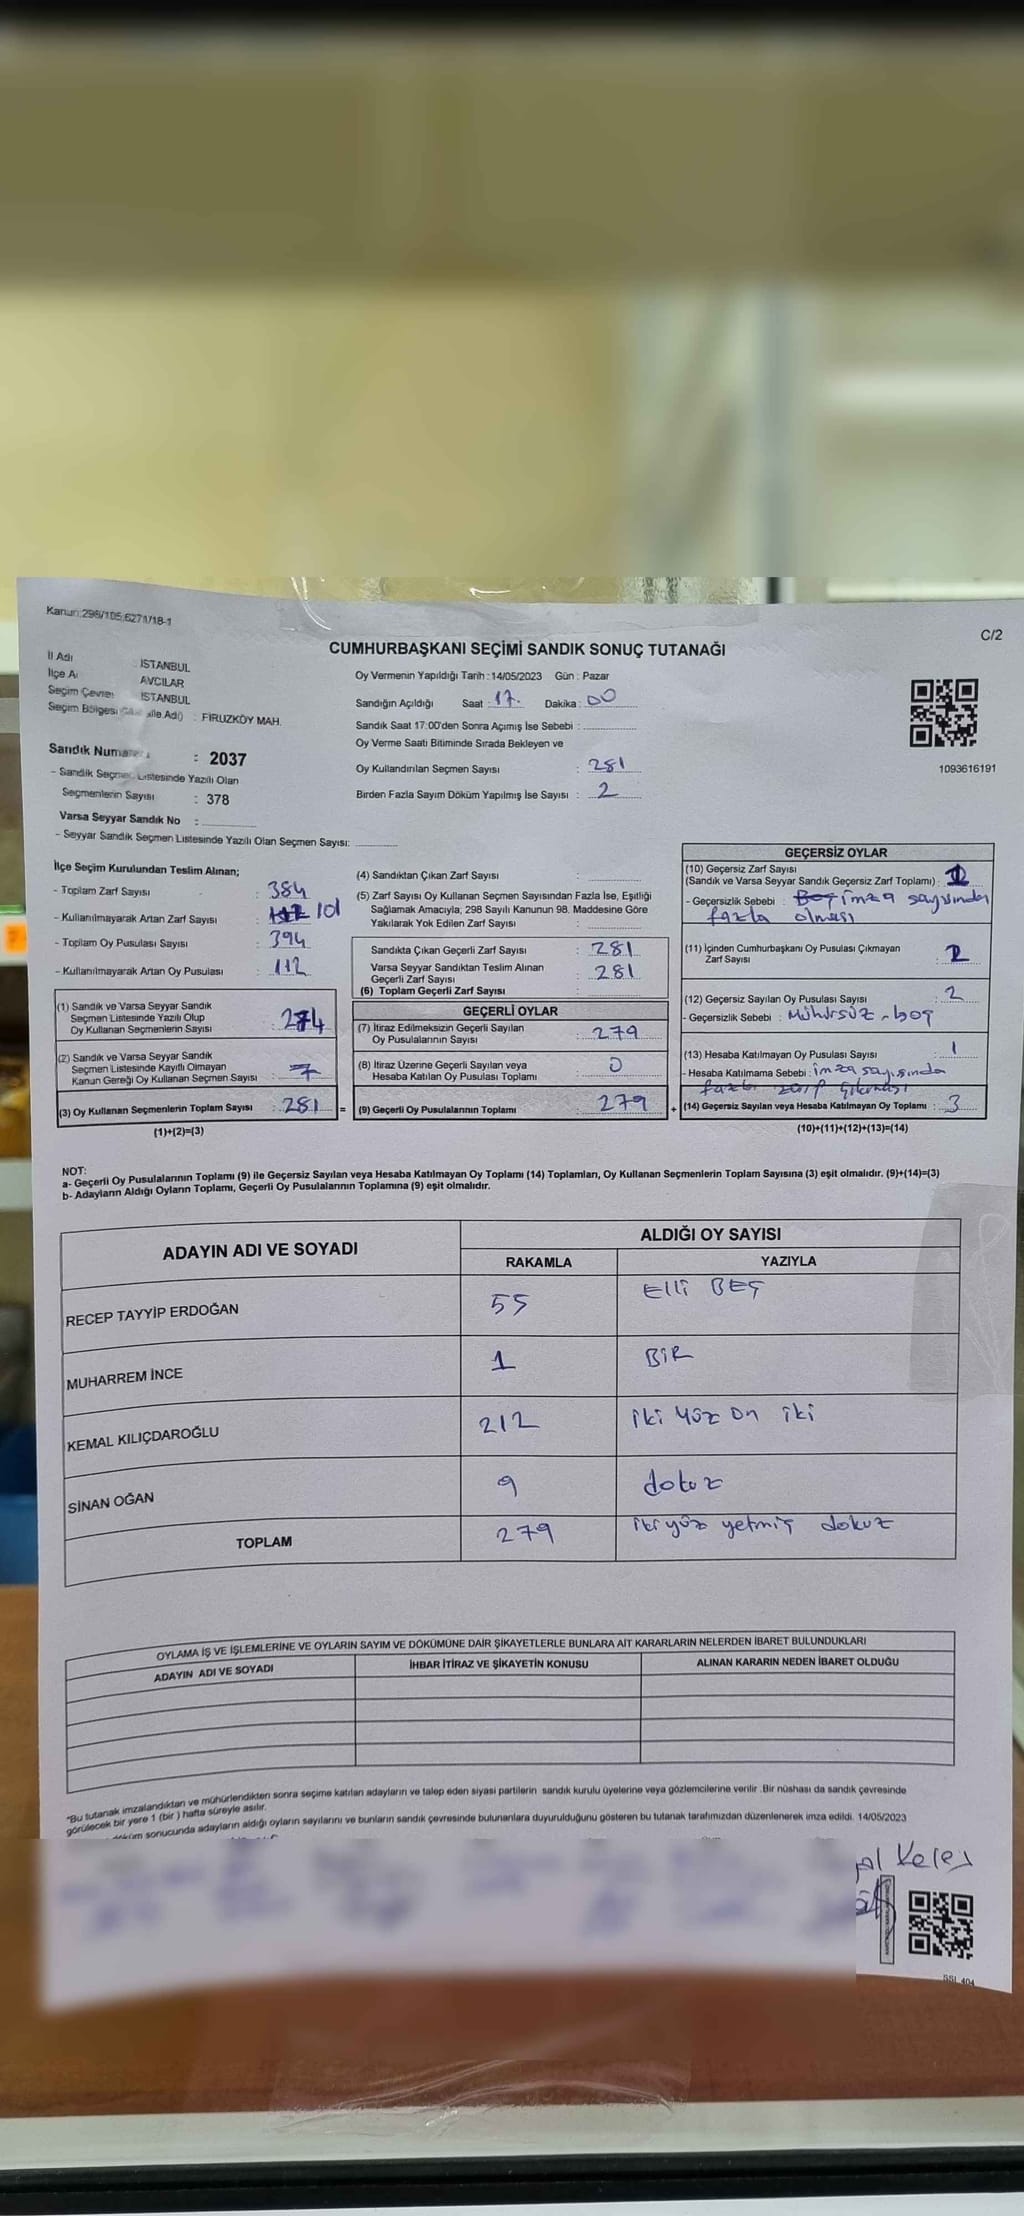 Kanun:298/105,6271/18-1
C/2
CUMHURBAŞKANI SEÇİMİ SANDIK SONUÇ TUTANAĞI
İl Adı : İSTANBUL
İlçe A : AVCILAR
Seçim Çevre : İSTANBUL
Seçim Bölgesi Adı) : FİRUZKÖY MAH.
Sandık Numara : 2037
- Sandık Seçmen Listesinde Yazılı Olan
Seçmenlerin Sayısı : 378
Varsa Seyyar Sandık No :
- Seyyar Sandık Seçmen Listesinde Yazılı Olan Seçmen Sayısı:
Oy Vermenin Yapıldığı Tarih : 14/05/2023 Gün : Pazar
Sandığın Açıldığı Saat : 17. Dakika : 00
Sandık Saat 17:00'den Sonra Açımış İse Sebebi :
Oy Verme Saati Bitiminde Sırada Bekleyen ve
Oy Kullandırılan Seçmen Sayısı : 281
Birden Fazla Sayım Döküm Yapılmış İse Sayısı : 2
1093616191
İlçe Seçim Kurulundan Teslim Alınan;
- Toplam Zarf Sayısı : 384
- Kullanılmayarak Artan Zarf Sayısı : 101
- Toplam Oy Pusulası Sayısı : 394
- Kullanılmayarak Artan Oy Pusulası : 112
(1) Sandık ve Varsa Seyyar Sandık
Seçmen Listesinde Yazılı Olup
Oy Kullanan Seçmenlerin Sayısı : 274
(2) Sandık ve Varsa Seyyar Sandık
Seçmen Listesinde Kayıtlı Olmayan
Kanun Gereği Oy Kullanan Seçmen Sayısı : 7
(3) Oy Kullanan Seçmenlerin Toplam Sayısı : 281 =
(1)+(2)=(3)
(4) Sandıktan Çıkan Zarf Sayısı :
(5) Zarf Sayısı Oy Kullanan Seçmen Sayısından Fazla İse, Eşitliği
Sağlamak Amacıyla, 298 Sayılı Kanunun 98. Maddesine Göre
Yakılarak Yok Edilen Zarf Sayısı :
Sandıkta Çıkan Geçerli Zarf Sayısı : 281
Varsa Seyyar Sandıktan Teslim Alınan
Geçerli Zarf Sayısı : 281
(6) Toplam Geçerli Zarf Sayısı :
GEÇERLİ OYLAR
(7) İtiraz Edilmeksizin Geçerli Sayılan
Oy Pusulalarının Sayısı : 279
(8) İtiraz Üzerine Geçerli Sayılan veya
Hesaba Katılan Oy Pusulası Toplamı : 0
(9) Geçerli Oy Pusulalarının Toplamı : 279 +
GEÇERSİZ OYLAR
(10) Geçersiz Zarf Sayısı
(Sandık ve Varsa Seyyar Sandık Geçersiz Zarf Toplamı) :
- Geçersizlik Sebebi : Boş imza sayısından
fazla olması
(11) İçinden Cumhurbaşkanı Oy Pusulası Çıkmayan
Zarf Sayısı :
(12) Geçersiz Sayılan Oy Pusulası Sayısı : 2
- Geçersizlik Sebebi : Mühürsüz - boş
(13) Hesaba Katılmayan Oy Pusulası Sayısı : 1
- Hesaba Katılmama Sebebi : imza sayısında
fazla zarf çıkması
(14) Geçersiz Sayılan veya Hesaba Katılmayan Oy Toplamı : 3
(10)+(11)+(12)+(13)=(14)
NOT:
a- Geçerli Oy Pusulalarının Toplamı (9) ile Geçersiz Sayılan veya Hesaba Katılmayan Oy Toplamı (14) Toplamları, Oy Kullanan Seçmenlerin Toplam Sayısına (3) eşit olmalıdır. (9)+(14)=(3)
b- Adayların Aldığı Oyların Toplamı, Geçerli Oy Pusulalarının Toplamına (9) eşit olmalıdır.
ADAYIN ADI VE SOYADI
ALDIĞI OY SAYISI
RAKAMLA YAZIYLA
RECEP TAYYİP ERDOĞAN 55 Elli BEŞ
MUHARREM İNCE 1 BİR
KEMAL KILIÇDAROĞLU 212 iki yüz on iki
SİNAN OĞAN 9 dokuz
TOPLAM 279 iki yüz yetmiş dokuz
OYLAMA İŞ VE İŞLEMLERİNE VE OYLARIN SAYIM VE DÖKÜMÜNE DAİR ŞİKAYETLERLE BUNLARA AİT KARARLARIN NELERDEN İBARET BULUNDUKLARI
ADAYIN ADI VE SOYADI İHBAR İTİRAZ VE ŞİKAYETİN KONUSU ALINAN KARARIN NEDEN İBARET OLDUĞU
*Bu tutanak imzalandıktan ve mühürlendikten sonra seçime katılan adayların ve talep eden siyasi partilerin sandık kurulu üyelerine veya gözlemcilerine verilir. Bir nüshası da sandık çevresinde
görülecek bir yere 1 (bir) hafta süreyle asılır.
sonucunda adayların aldığı oyların sayılarını ve bunların sandık çevresinde bulunanlara duyurulduğunu gösteren bu tutanak tarafımızdan düzenlenerek imza edildi. 14/05/2023
Keleş
SSI 404